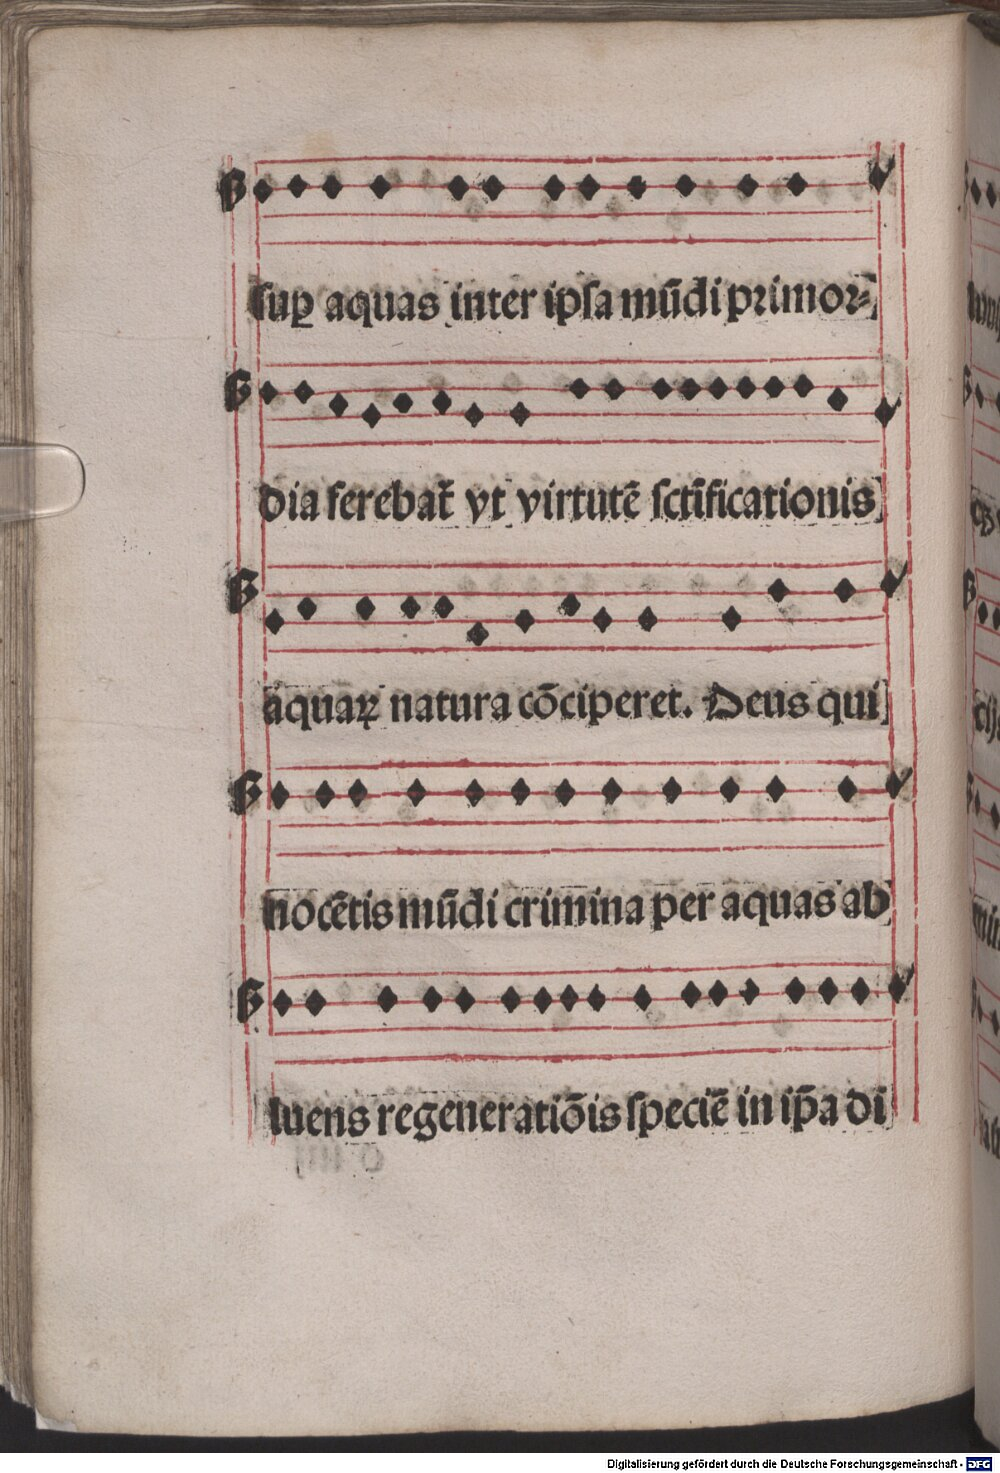 sup aquas inter ipsa mūdi primor⸗
dia ferebat᷑ vt virtutē sctīficationis
aquaꝝ natura cōciperet. Deus qui
nocētis mūdi crimina per aquas ab
luens regeneratiōis speciē in ip̄a di
Digitalisierung gefördert durch die Deutsche Forschungsgemeinschaft - DFG